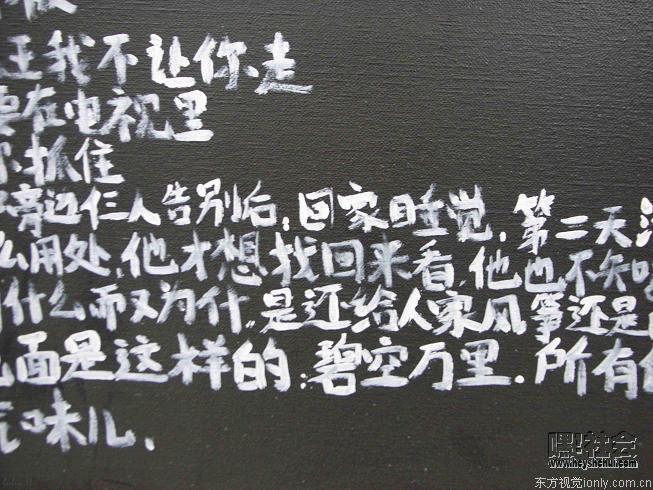 王我不让你走
要在电视里
你抓住
旁边仨人告别后:回家睡觉.第二天
么用处.他才想找回来看.他也不知
什么而又为什..是还给人家风筝还是
面是这样的:碧空万里.所有
味儿.
嘿!社会
www.heyshehui.com
东方视觉ionly.com.cn